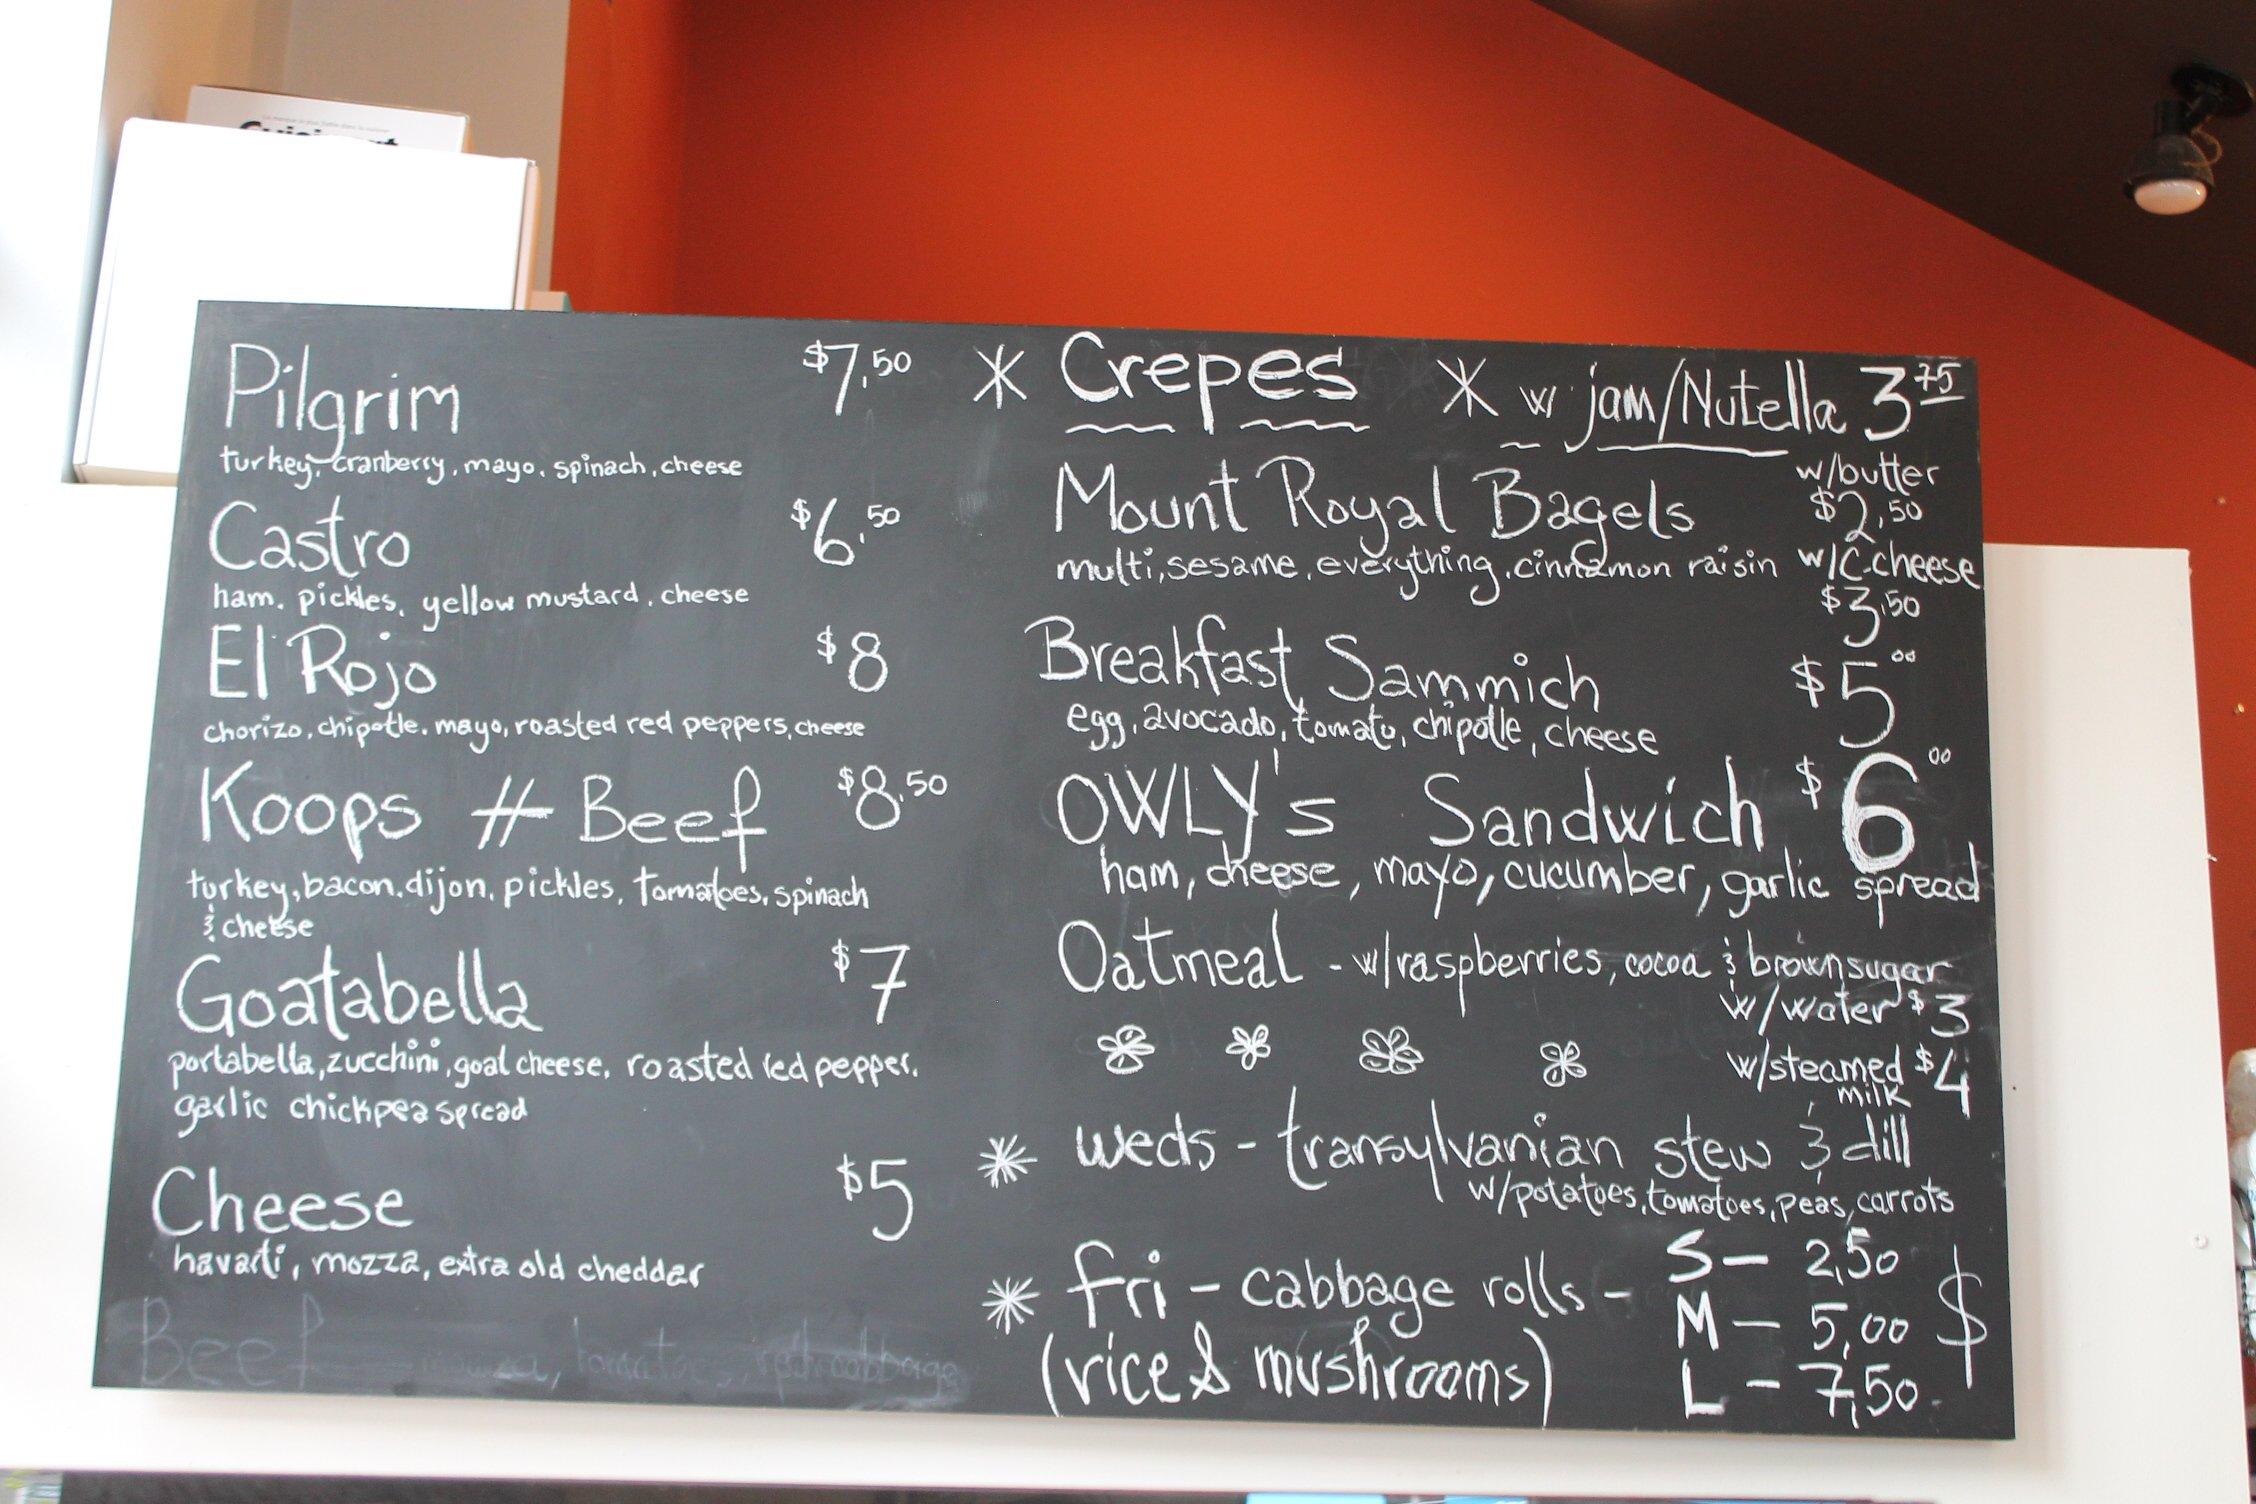 Pilgrim $7.50
turkey, cranberry, mayo, spinach, cheese
Castro $6.50
ham. pickles, yellow mustard, cheese
El Rojo $8
chorizo, chipotle. mayo, roasted red peppers, cheese
Koops # Beef $8.50
turkey, bacon. dijon, pickles, tomatoes, spinach
& cheese
Goatabella $7
portabella, zucchini, goat cheese, roasted red pepper,
garlic chickpea spread
Cheese $5
havarti, mozza, extra old cheddar
Beef tomatoes, red cabbage
* Crepes * w jam/Nutella 3 75
Mount Royal Bagels w/butter
$2.50
multi, sesame, everything, cinnamon raisin w/C-cheese
$3.50
Breakfast Sammich $5 00
egg, avocado, tomato, chipotle, cheese
OWLY's Sandwich $6 00
ham, cheese, mayo, cucumber, garlic spread
Oatmeal - w/raspberries, cocoa & brown sugar
w/water $3
w/steamed $4
milk
* weds - transylvanian stew & dill
w/potatoes, tomatoes, peas, carrots
* fri - cabbage rolls - S - 2,50
M - 5,00 $
(rice & mushrooms) L - 7,50